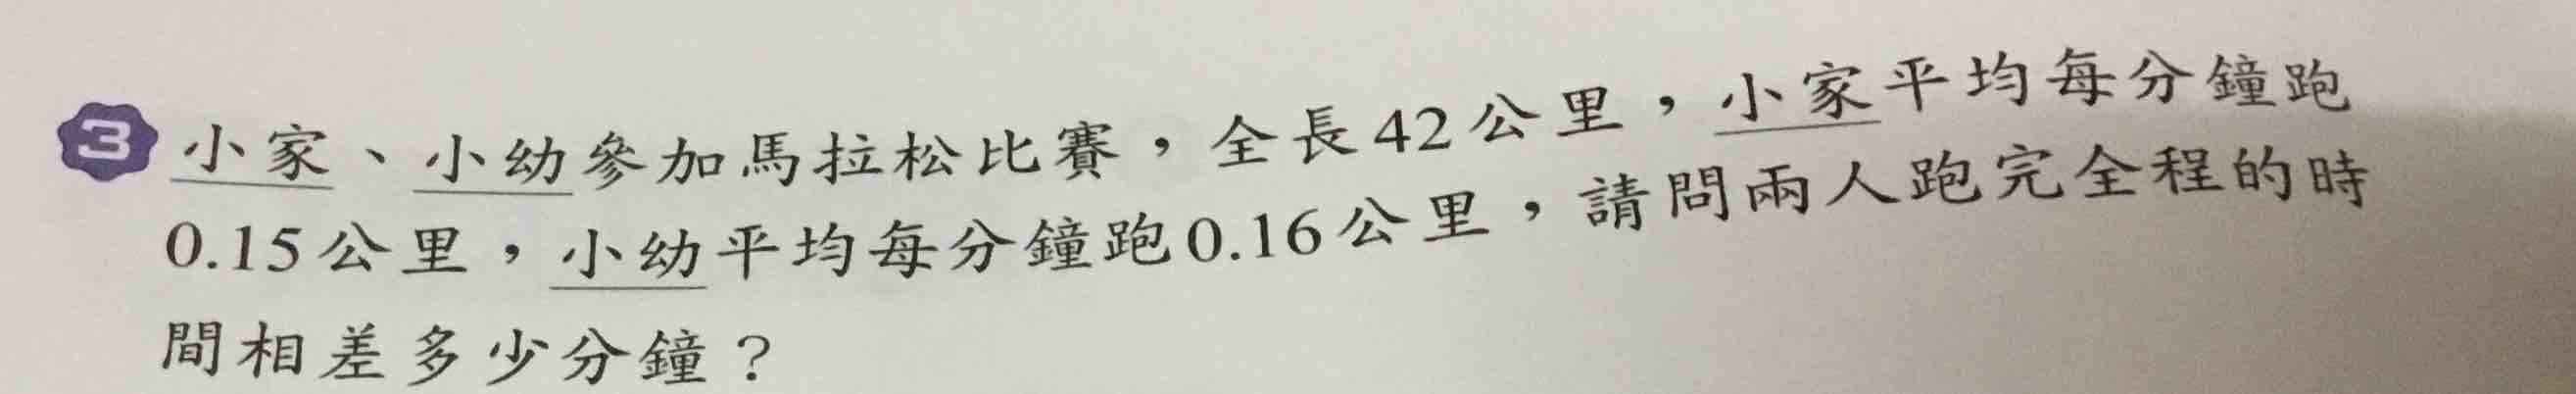 3 小家、小幼參加馬拉松比賽，全長42公里，小家平均每分鐘跑
0.15公里，小幼平均每分鐘跑0.16公里，請問兩人跑完全程的時
間相差多少分鐘？